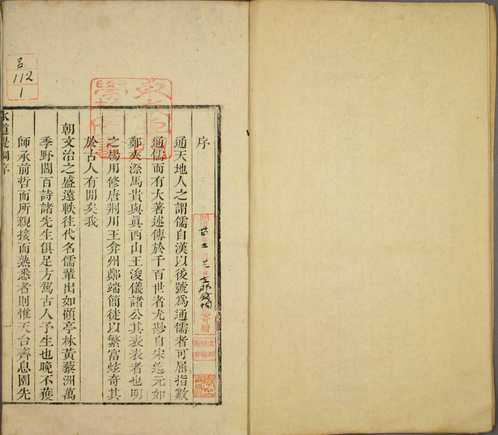 序
通天地人之謂儒自漢以後號爲通儒者可屈指數
通儒而有大著述傳於千百世者尤尠自宋迄元如
鄭夾漈馬貴與眞西山王浚儀諸公其表表者也明
之楊用修唐荆川王弇州鄭端簡徒以繁富炫奇其
於古人有閒矣我
朝文治之盛遠軼往代名儒輩出如顧亭林黃藜洲萬
季野閻百詩諸先生俱足方駕古人予生也晚不獲
師承前哲而所親接而熟悉者則惟天台齊息園先
水道提綱序
112
1